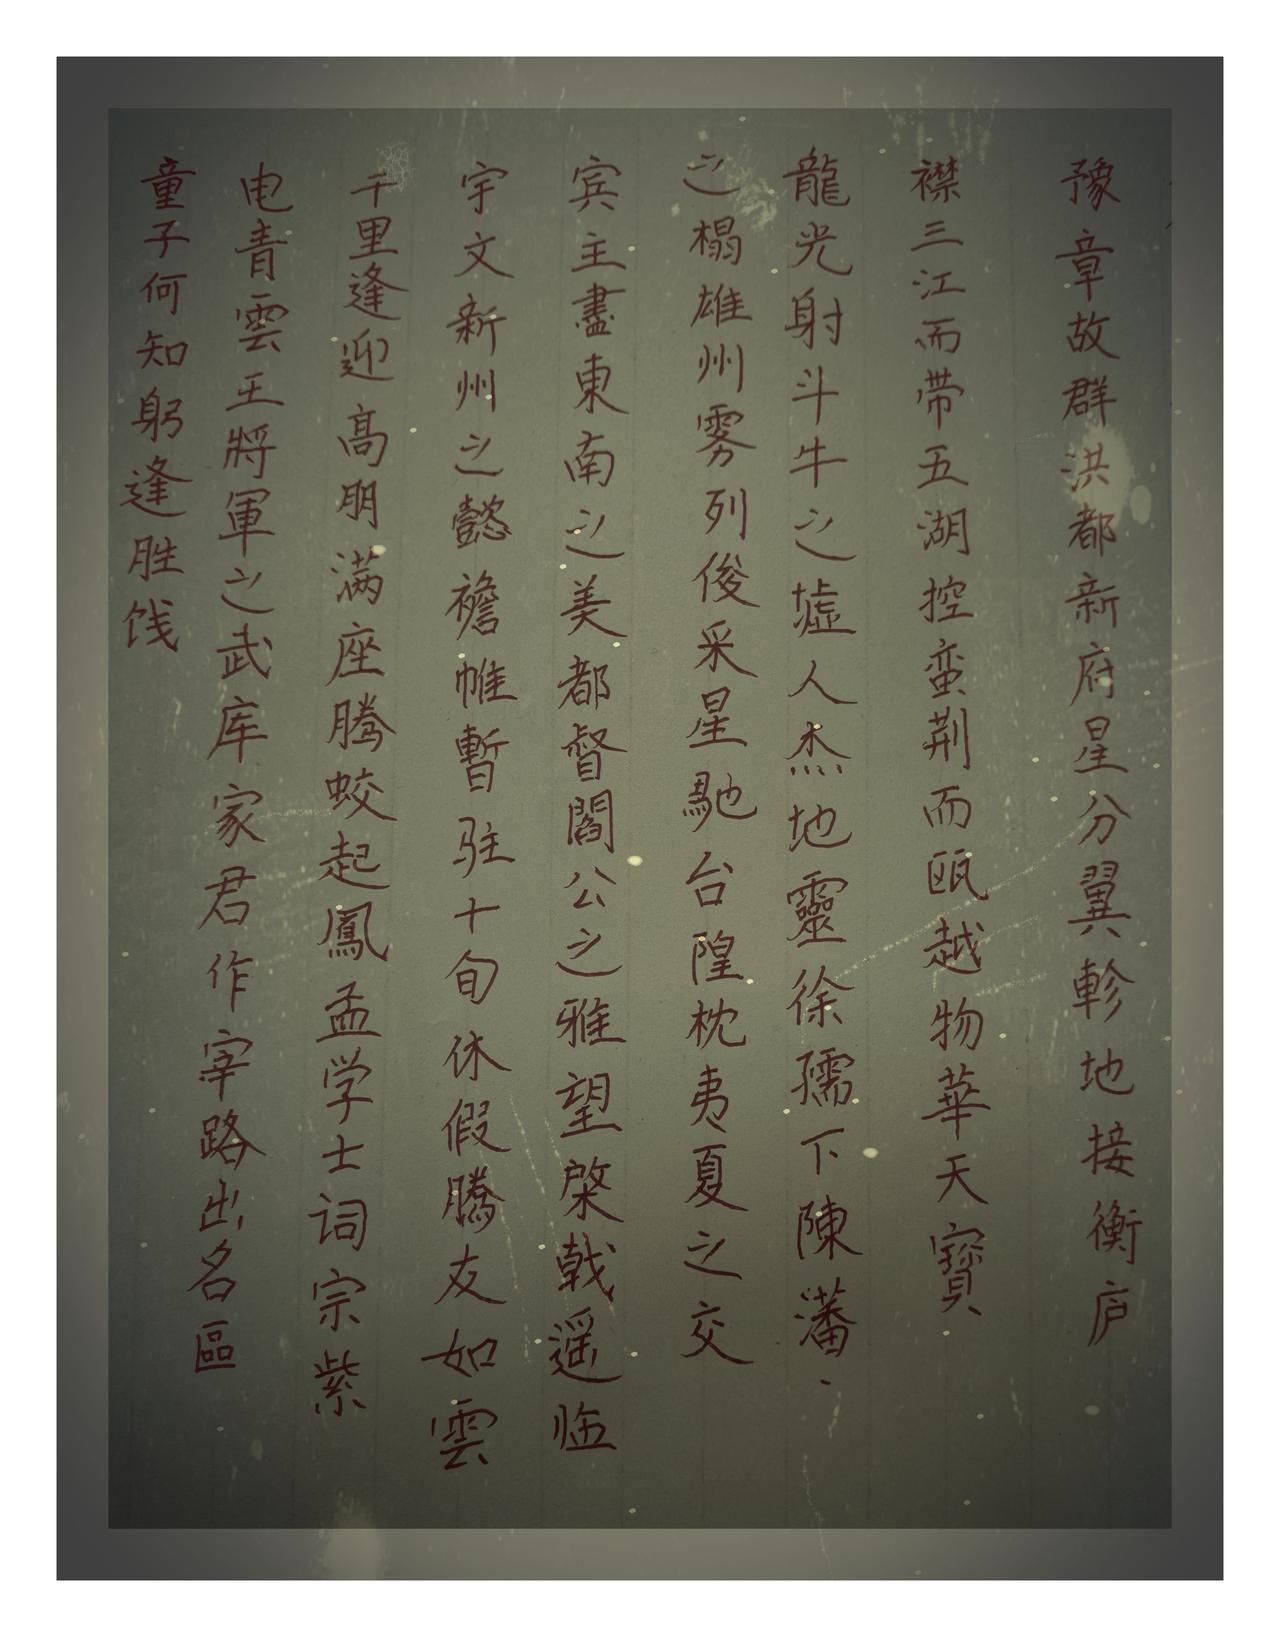 豫章故群洪都新府星分翼軫地接衡庐
襟三江而带五湖控蛮荆而瓯越物華天寳
龍光射斗牛之墟人杰地靈徐孺下陳藩
之榻雄州雾列俊采星馳台隍枕夷夏之交
宾主盡東南之美都督閻公之雅望棨戟遥临
宇文新州之懿襜帷暫驻十旬休假腾友如雲
千里逢迎高朋满座腾蛟起鳳孟学士词宗紫
电青雲王將軍之武库家君作宰路出名區
童子何知躬逢胜饯